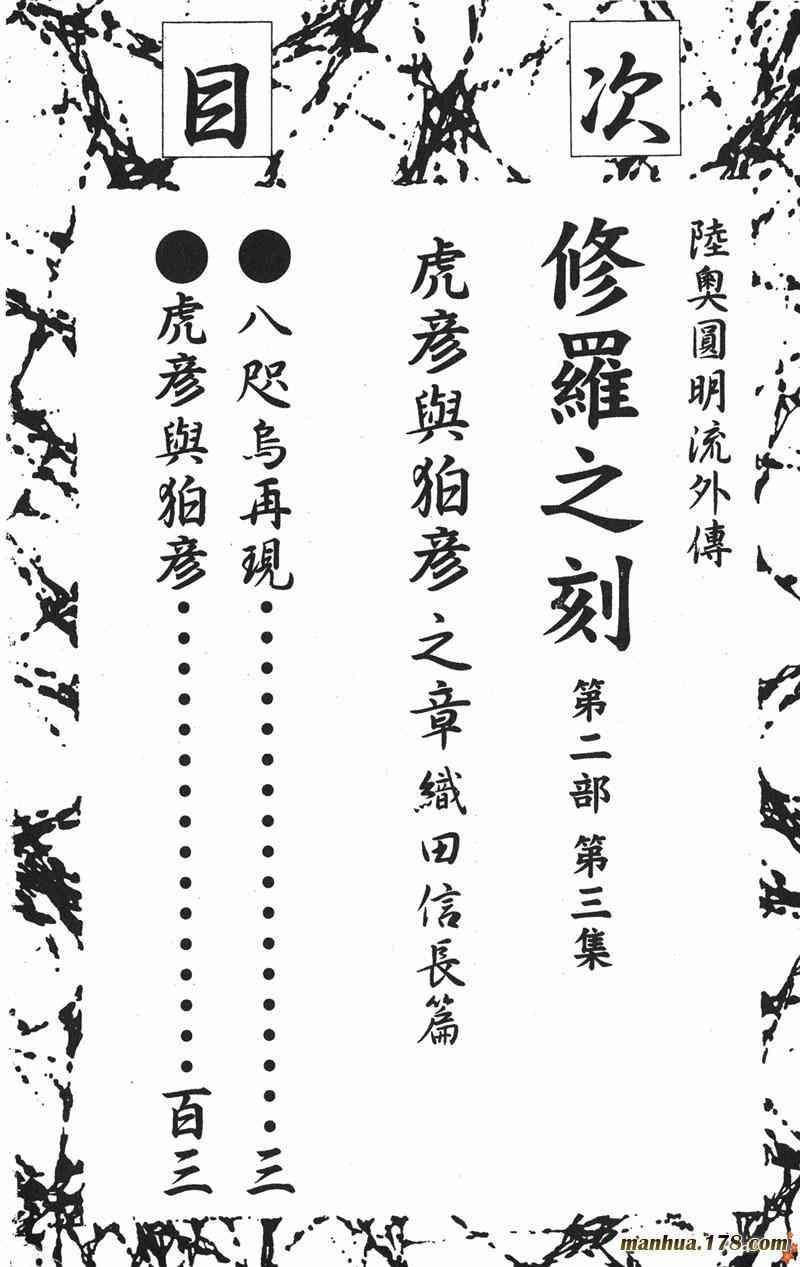 目次
陸奥圓明流外傳
修羅之刻 第二部 第三集
虎彦與狛彦之章 織田信長篇
●八咫烏再現・・・・・・・・・・・・・・・・・・三
●虎彦與狛彦・・・・・・・・・・・・・・・・百三
manhua.178.com